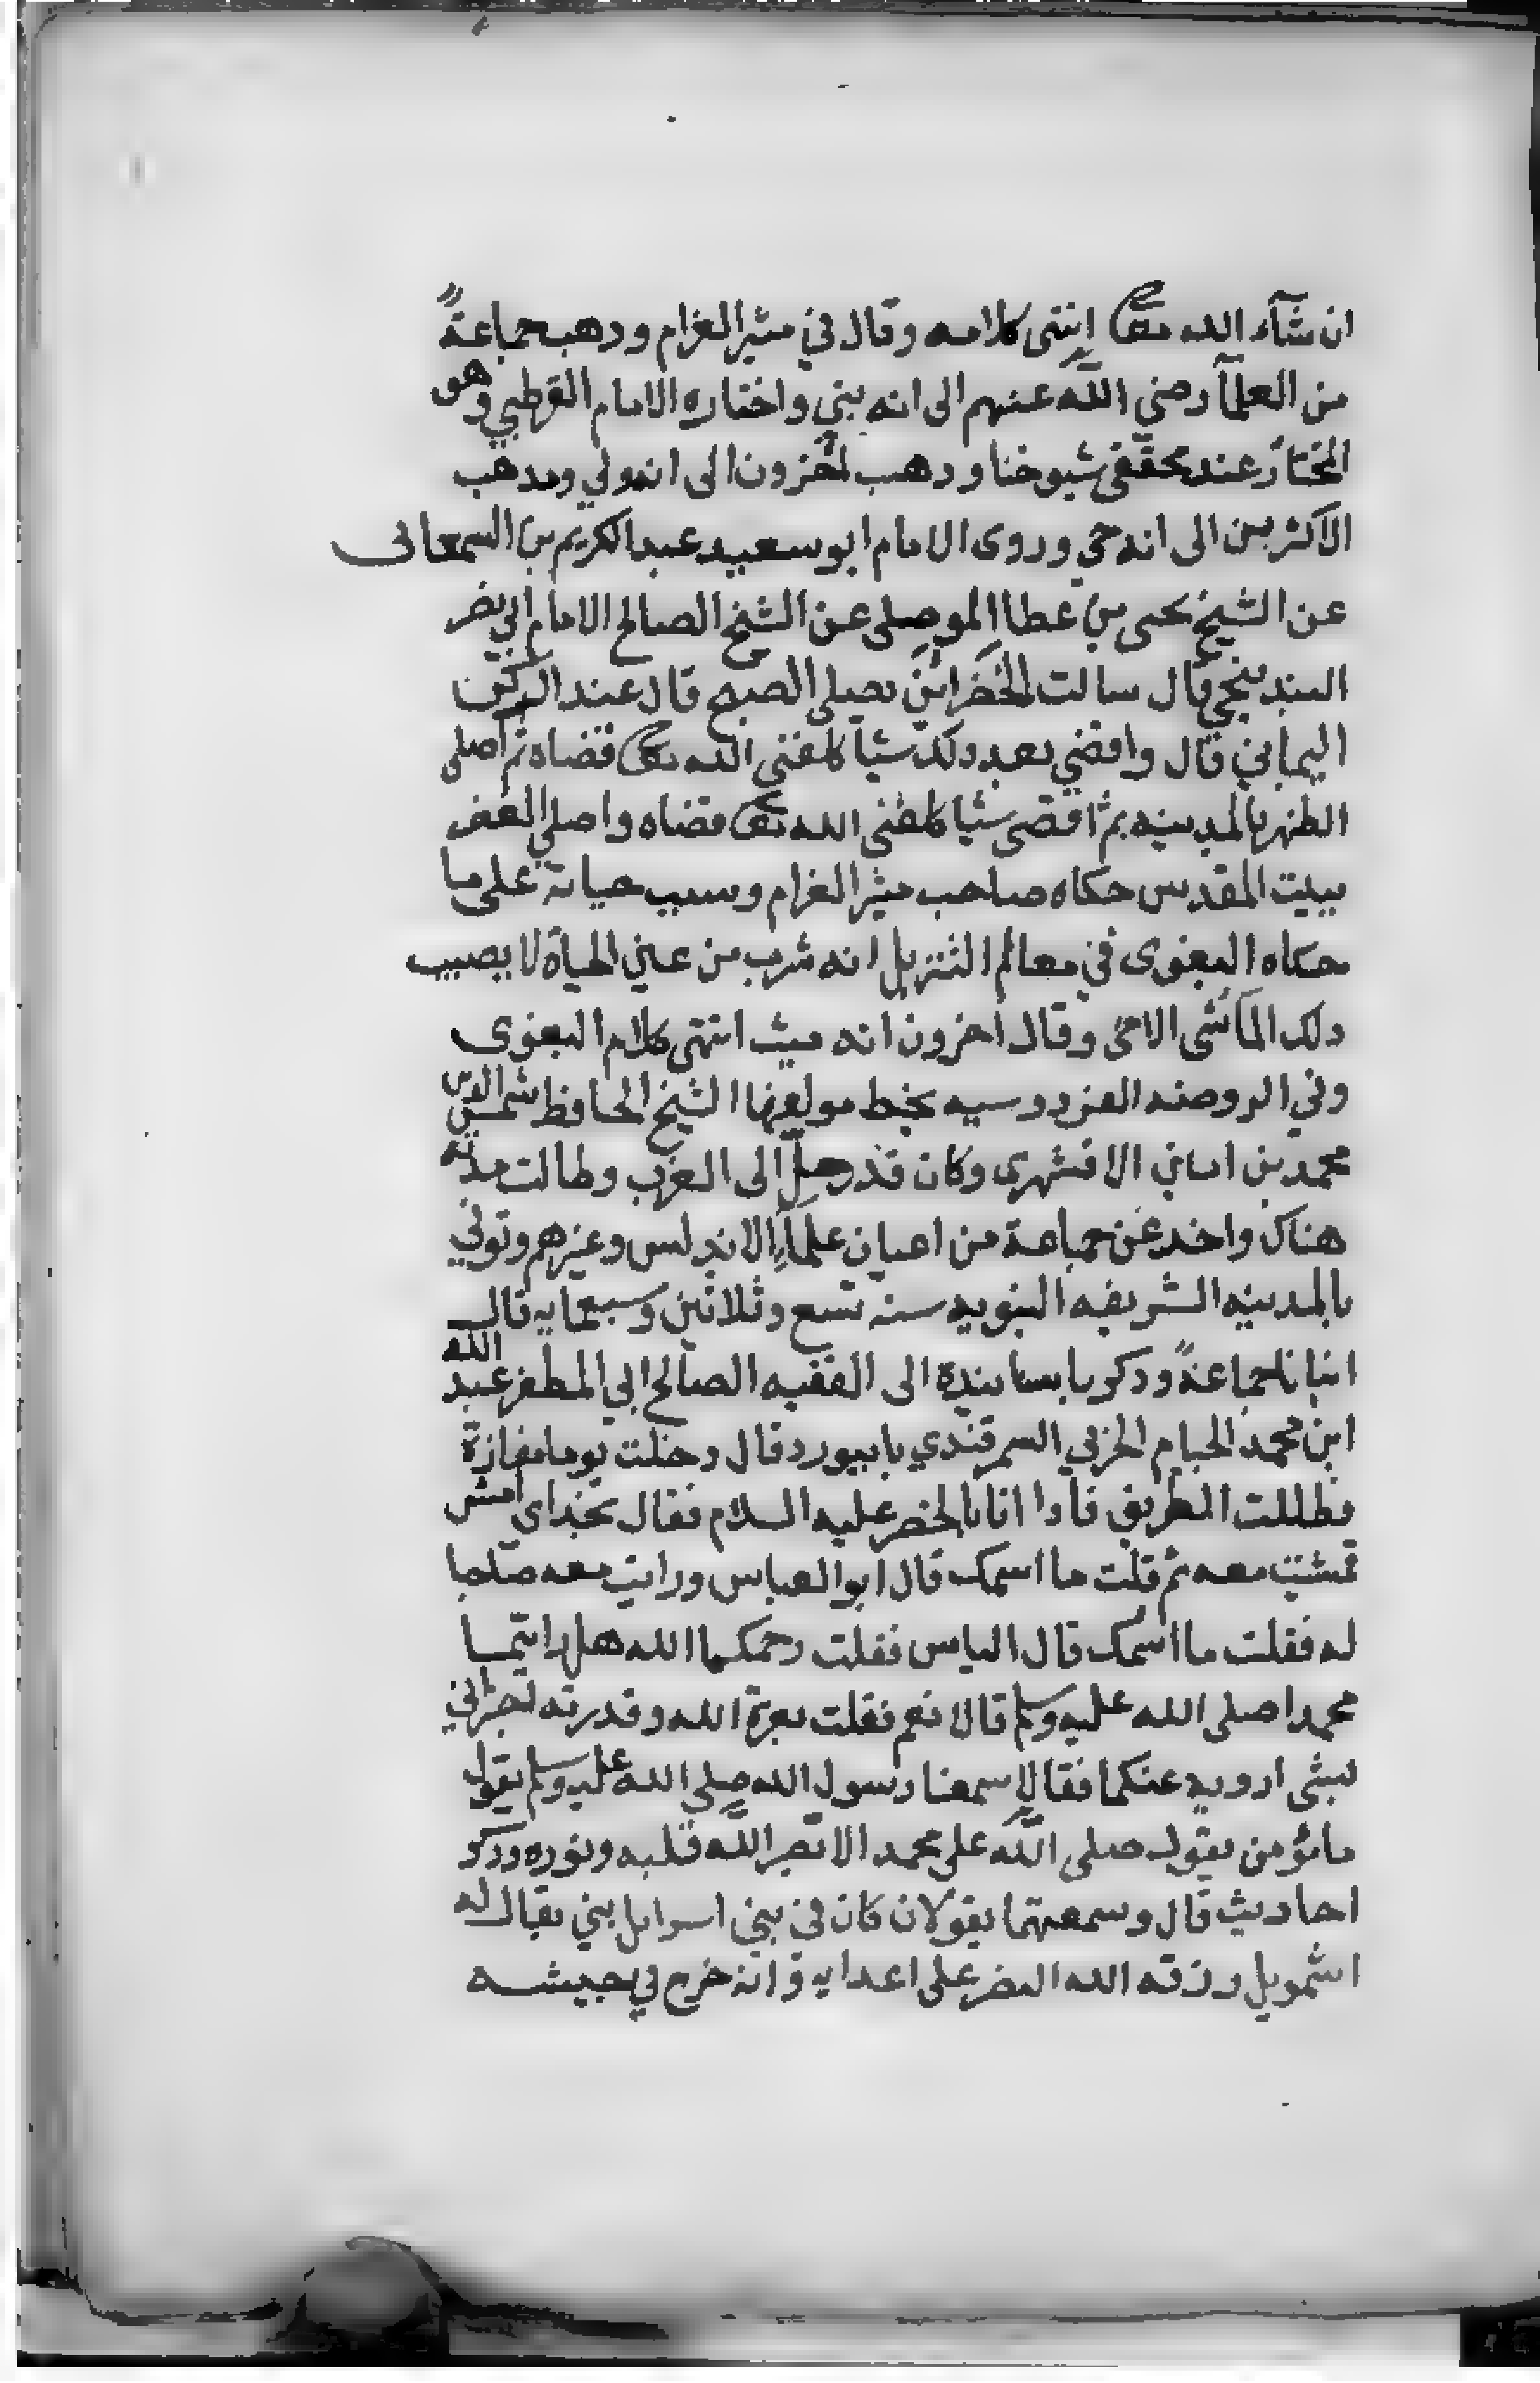 ان شآء الله تعالى انتهى كلامه وقال في مثير الغرام وذهب جماعةً
من العلمآ رضي الله عنهم الى انه نبي واختاره الامام القرطبي وهو
المختار عند محققى شيوخنا وذهب اخرون الى انه ولي ومذهب
الاكثرين الى انه حي وروى الامام ابو سعيد عبد الكريم بن السمعانى
عن الشيخ يحيى بن عطا الموصلى عن الشيخ الصالح الامام ابي نصر
البندنيجي قال سالت الخضر اين يصلى الصبح قال عند الركن
اليماني قال واقضي بعد ذلك شيآ كلفنى الله تعالى قضاه ثم اصلى
الظهر بالمدينه ثم اقضى شيا كلفنى الله تعالى قضاه واصلى العصر
ببيت المقدس حكاه صاحب مثير الغرام وسبب حياته على ما
حكاه البغوى في معالم التنزيل انه شرب من عين الحياة لا يصيب
ذلك المآ شى الا حي وقال اخرون انه ميت انتهى كلام البغوى
وفي الروضه الفردوسيه بخط مولفها الشيخ الحافظ شمس الدين
محمد بن امين الاقشهرى وكان قد رحل الى الغرب وطالت مدته
هناك واخذ عن جماعة من اعيان علمآء الاندلس وغيرهم وتوفي
بالمدينه الشريفه النبويه سنه تسع وثلاثين وسبعمايه قال
انبانا جماعةً وذكر باسانيده الى الفقيه الصالح ابي المظفر عبد الله
ابن محمد الخيام السمرقندي بابيورد قال دخلت يوما مفازة
فظللت الطريق فاذا انا بالخضر عليه السلام فقال بخداى امش
فمشيت معه ثم قلت ما اسمك قال ابو العباس ورايت معه صاحبا
له فقلت ما اسمك قال الياس فقلت رحمكما الله هل رايتما
محمدا صلى الله عليه وسلم قالا نعم فقلت بعزة الله وقدرته لتخبراني
بشى ارويه عنكما فقالا سمعنا رسول الله صلى الله عليه وسلم يقول
ما مؤمن يقول صلى الله على محمد الا نضر الله قلبه ونوره وذكر
احاديث قال وسمعتهما يقولان كان في بني اسرايل نبي يقال له
اشمويل رزقه الله النصر على اعدايه وانه خرج في جيشه